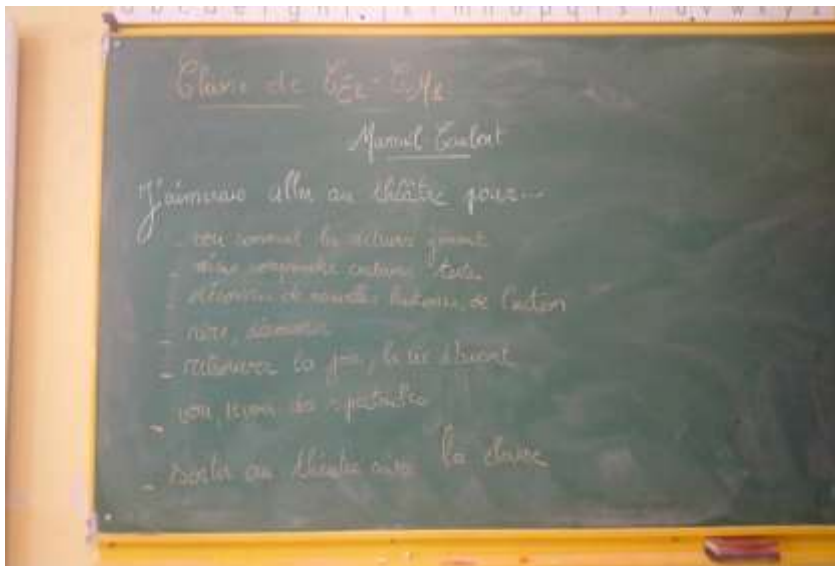 a b c d e f g h i j k l m n o p q r s t u v w x y z
Classe de CE2-CM2
J'aimerais aller au théâtre pour...
- voir comment les acteurs jouent
- mieux comprendre certains textes
- découvrir de nouvelles histoires, de l'action
- rire, s'amuser
- retrouver la joie, la vie d'avant
- voir, revoir des spectacles
- sortir au théâtre avec la classe